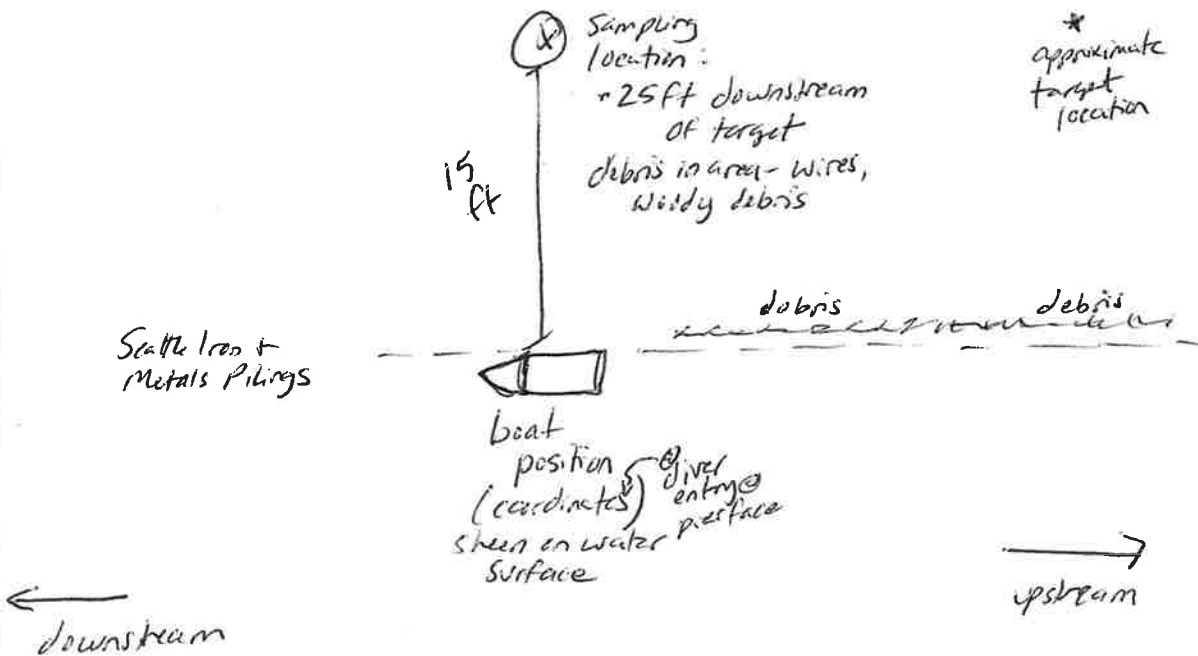 Sampling
location:
~25ft downstream
of target
debris in area - wires,
woody debris
*
approximate
target
location
15
ft
debris
debris
Seattle Iron +
Metals Pilings
boat
position
(coordinates)
@ diver
entry @
pierface
sheen on water
surface
upstream
downstream